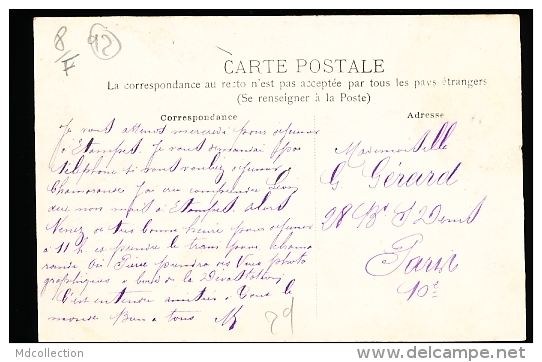 8/F 92
CARTE POSTALE
La correspondance au recto n'est pas acceptée par tous les pays étrangers
(Se renseigner à la Poste)
Correspondance
Adresse
Je vous attends mercredi pour dejeuner
à Etampes. Je vous demandai par
téléphone si vous voulez dejeuner
Chamarande J'ai cru comprendre
que non mais à Etampes alors
Venez de très bonne heure pour dejeuner
à 11 h et prendre le train pour Chama
rande où Pierre prendra des Vues photo
graphiques de la Dévastation
C'est entendu amitiés à Tous le
monde Bien à tous M
Mademoiselle
G Gérard
28 Bd St Denis
Paris
10e
Mdcollection
http://www.delcampe.net